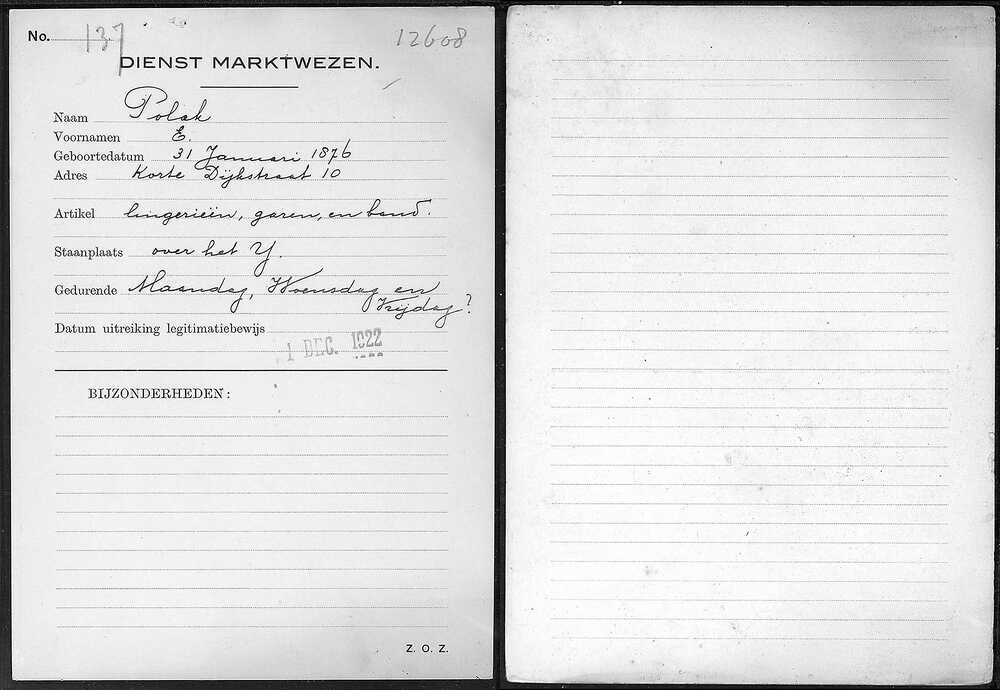 No. 137 12608
DIENST MARKTWEZEN.
Naam Polak
Voornamen E.
Geboortedatum 31 Januari 1876
Adres Korte Dijkstraat 10
Artikel lingerieën, garen, en band.
Staanplaats over het Y.
Gedurende Maandag, Woensdag en
Vrijdag?
Datum uitreiking legitimatiebewijs
1 DEC. 1922
BIJZONDERHEDEN:
Z. O. Z.